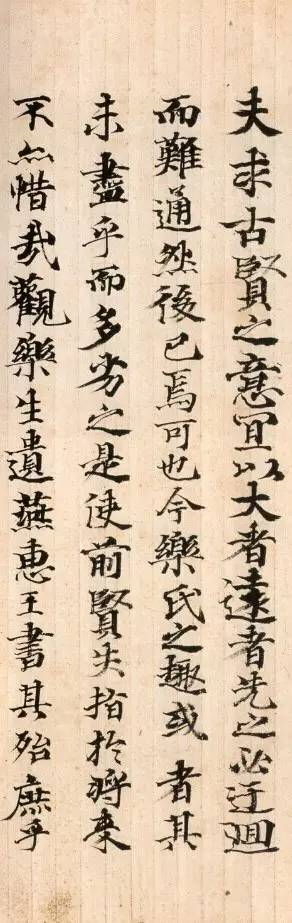 夫求古賢之意宜以大者遠者先之必迂迴
而難通然後已焉可也今樂氏之趣或者其
未盡乎而多劣之是使前賢失指於將來
不亦惜哉觀樂生遺燕惠王書其殆庶乎